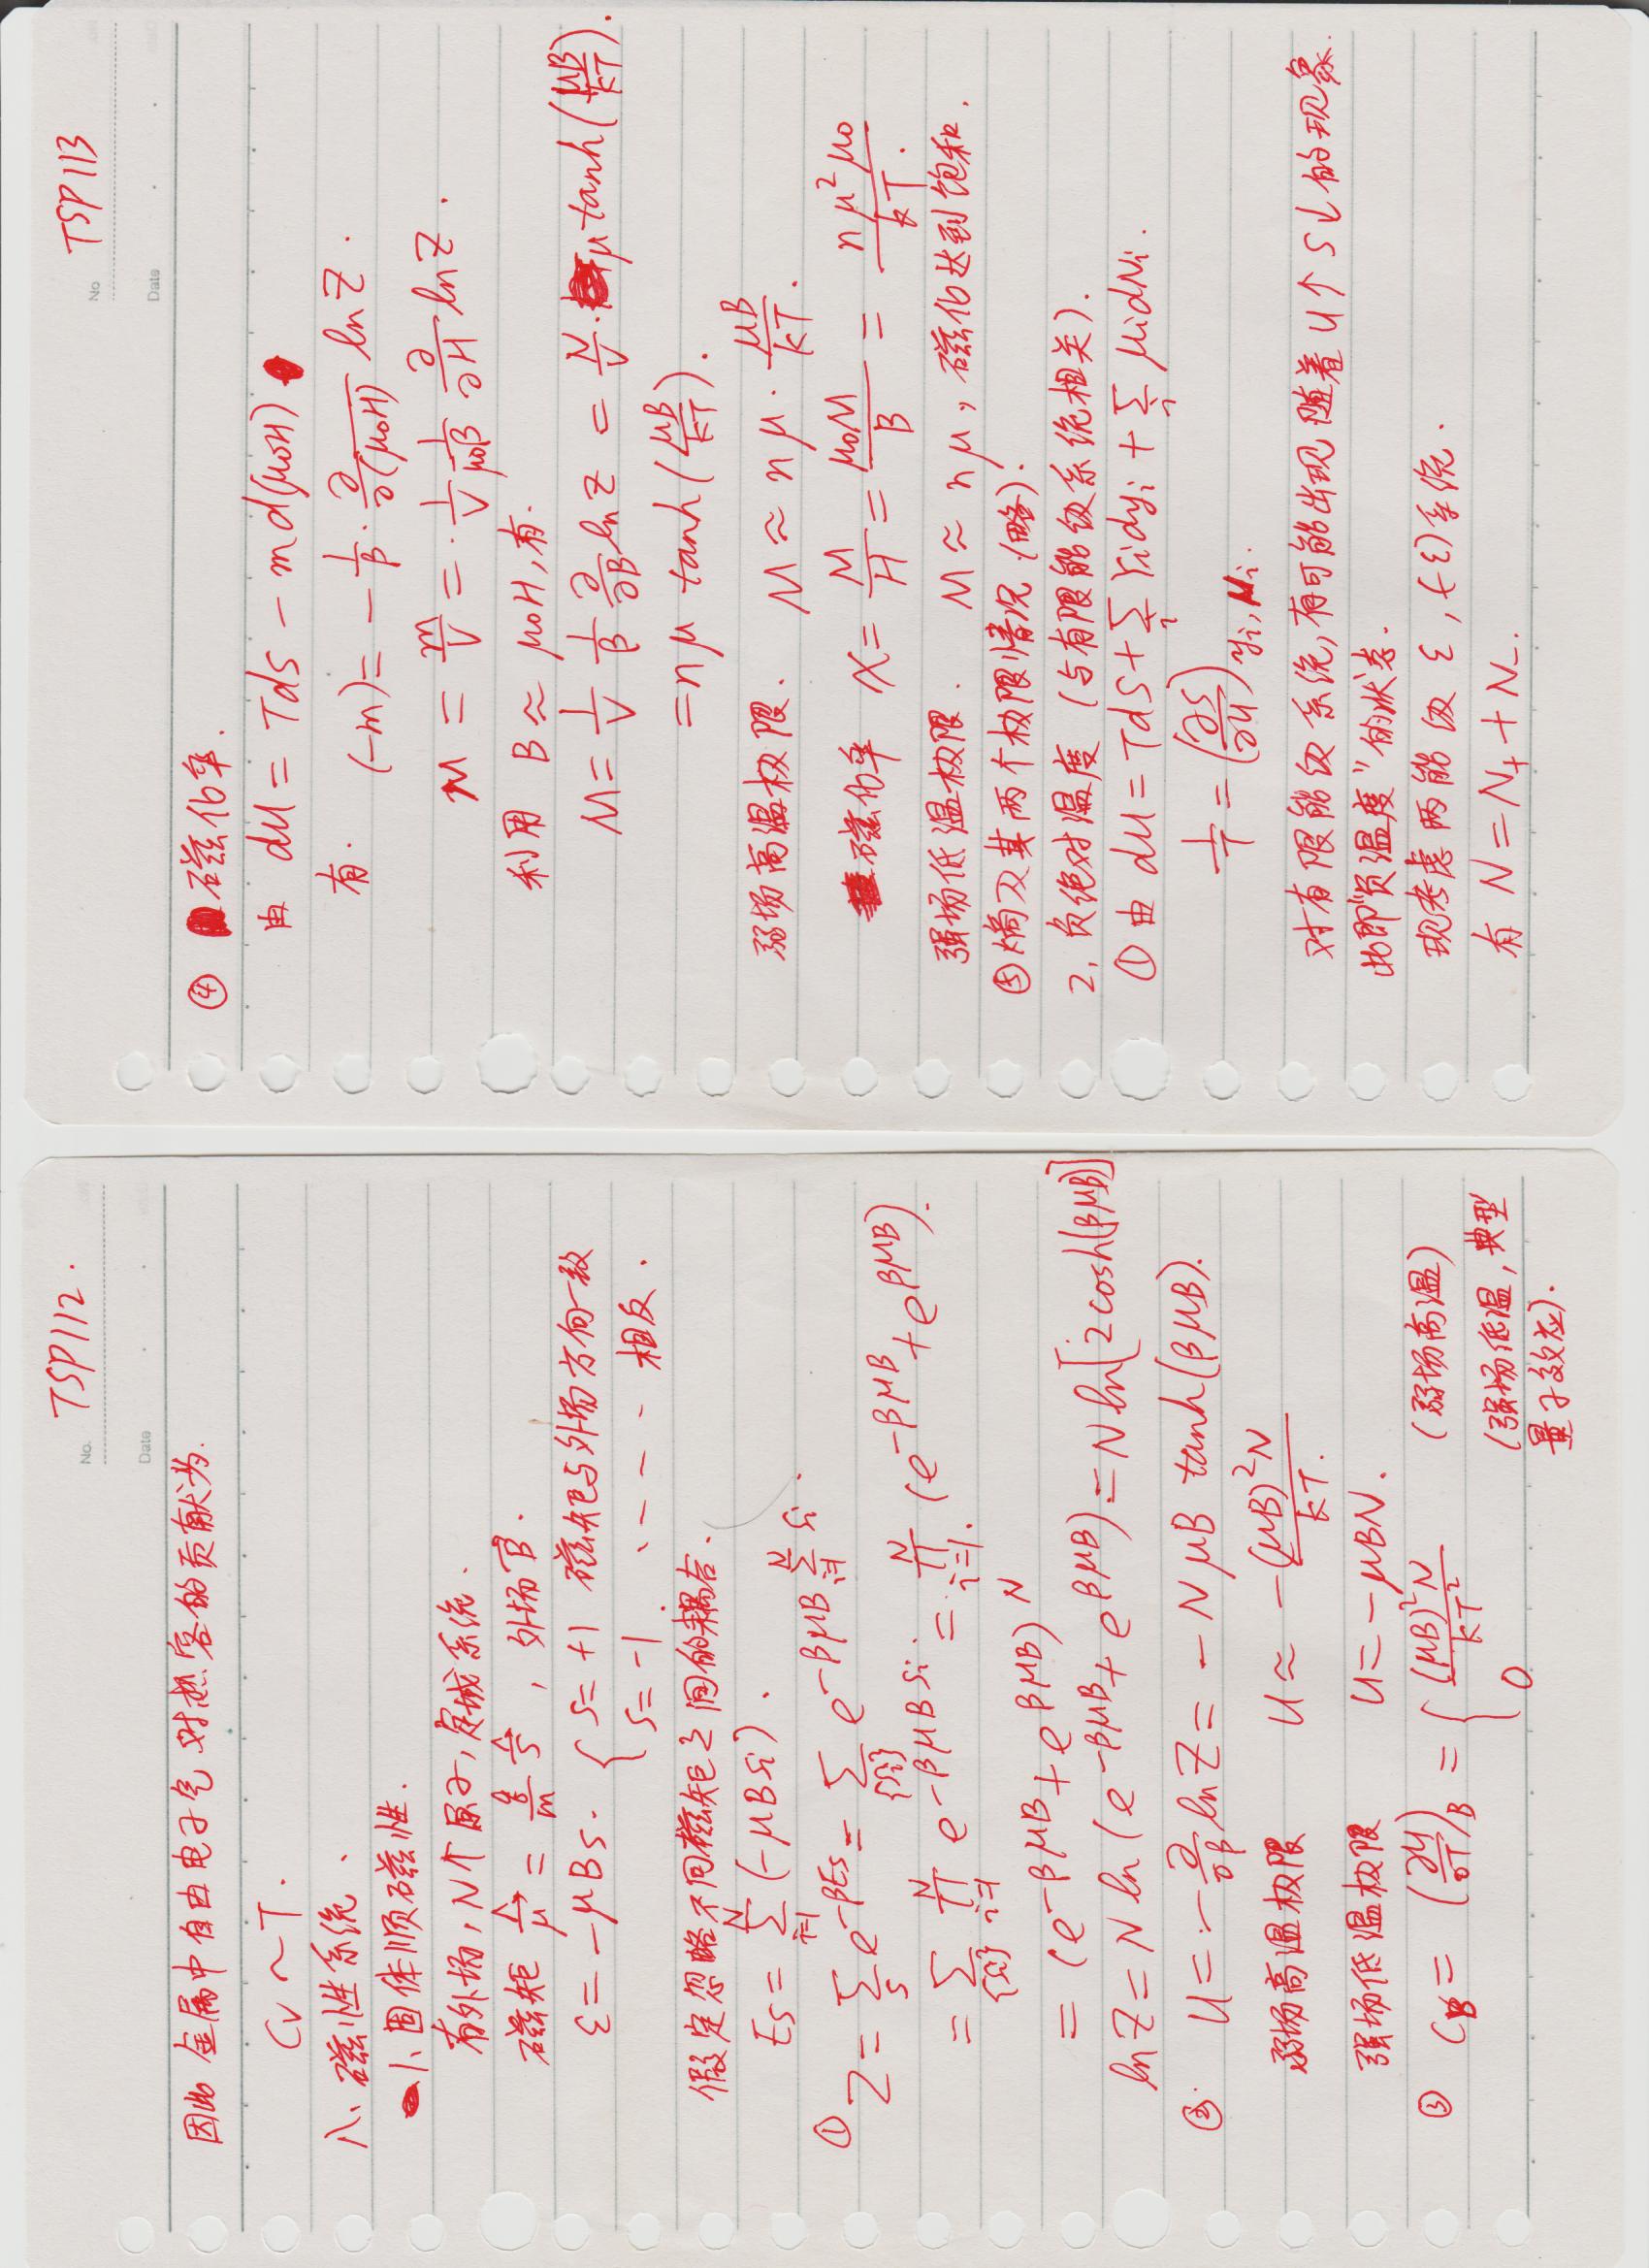 No. TSP112.
Date
因此 金属中自由电子气对热容的贡献为.
Cv ~ T.
八、磁性系统.
1、固体顺磁性.
有外场, N个原子, 定域系统.
磁矩 \hat{\vec{μ}} = \frac{g}{m} \hat{\vec{s}} , 外场 \vec{B}.
ε = -μBs. { s = +1 磁矩与外场方向一致
s = -1. 、- - - - 相反.
假定忽略不同磁矩之间的耦合.
Es = \sum_{i=1}^{N} (-μBsi).
① Z = \sum_{s} e^{-βEs} = \sum_{\{si\}} e^{-βμB \sum_{i=1}^{N} si}.
= \sum_{\{si\}} \prod_{i=1}^{N} e^{-βμBsi}. = \prod_{i=1.}^{N} (e^{-βμB} + e^{βμB}).
= (e^{-βμB} + e^{βμB})^N
ln Z = N ln (e^{-βμB} + e^{βμB}) = N ln[2cosh(βμB)]
②. U = -\frac{∂}{∂β} ln Z = -NμB tanh(βμB).
弱场高温极限 U ≈ -\frac{(μB)^2 N}{kT.}
强场低温极限 U = -μBN.
③ C_B = (\frac{∂U}{∂T})_B = { \frac{(μB)^2 N}{kT^2} (弱场高温)
0 (强场低温, 典型
量子效应).
No TSP113
Date
④ 磁化率.
由 dU = TdS - md(μ0H)
有. (-m) = -\frac{1}{β} · \frac{∂}{∂(μ0H)} ln Z.
M = \frac{m}{V} = \frac{1}{V} \frac{1}{μ0β} \frac{∂}{∂H} ln Z.
利用 B ≈ μ0H, 有.
M = \frac{1}{V} \frac{1}{β} \frac{∂}{∂B} ln Z = \frac{N}{V} · μ tanh(\frac{μB}{kT}).
= nμ tanh(\frac{μB}{kT}).
弱场高温极限. M ≈ nμ · \frac{μB}{kT.}
磁化率 χ = \frac{M}{H} = \frac{μ0M}{B} = \frac{nμ^2μ0}{kT.}
强场低温极限. M ≈ nμ, 磁化达到饱和.
⑤ 熵及其两个极限情况 (略).
2, 负绝对温度 (与有限能级系统相关).
① 由 dU = TdS + \sum_{i} Yidyi + \sum_{i} μidNi.
\frac{1}{T} = (\frac{∂S}{∂U})_{yi, Ni.}
对有限能级系统, 有可能出现随着U↑ S↓的现象.
此即“负温度”的状态.
现考虑两能级 ε, (-ε)系统.
有 N = N+ + N-.